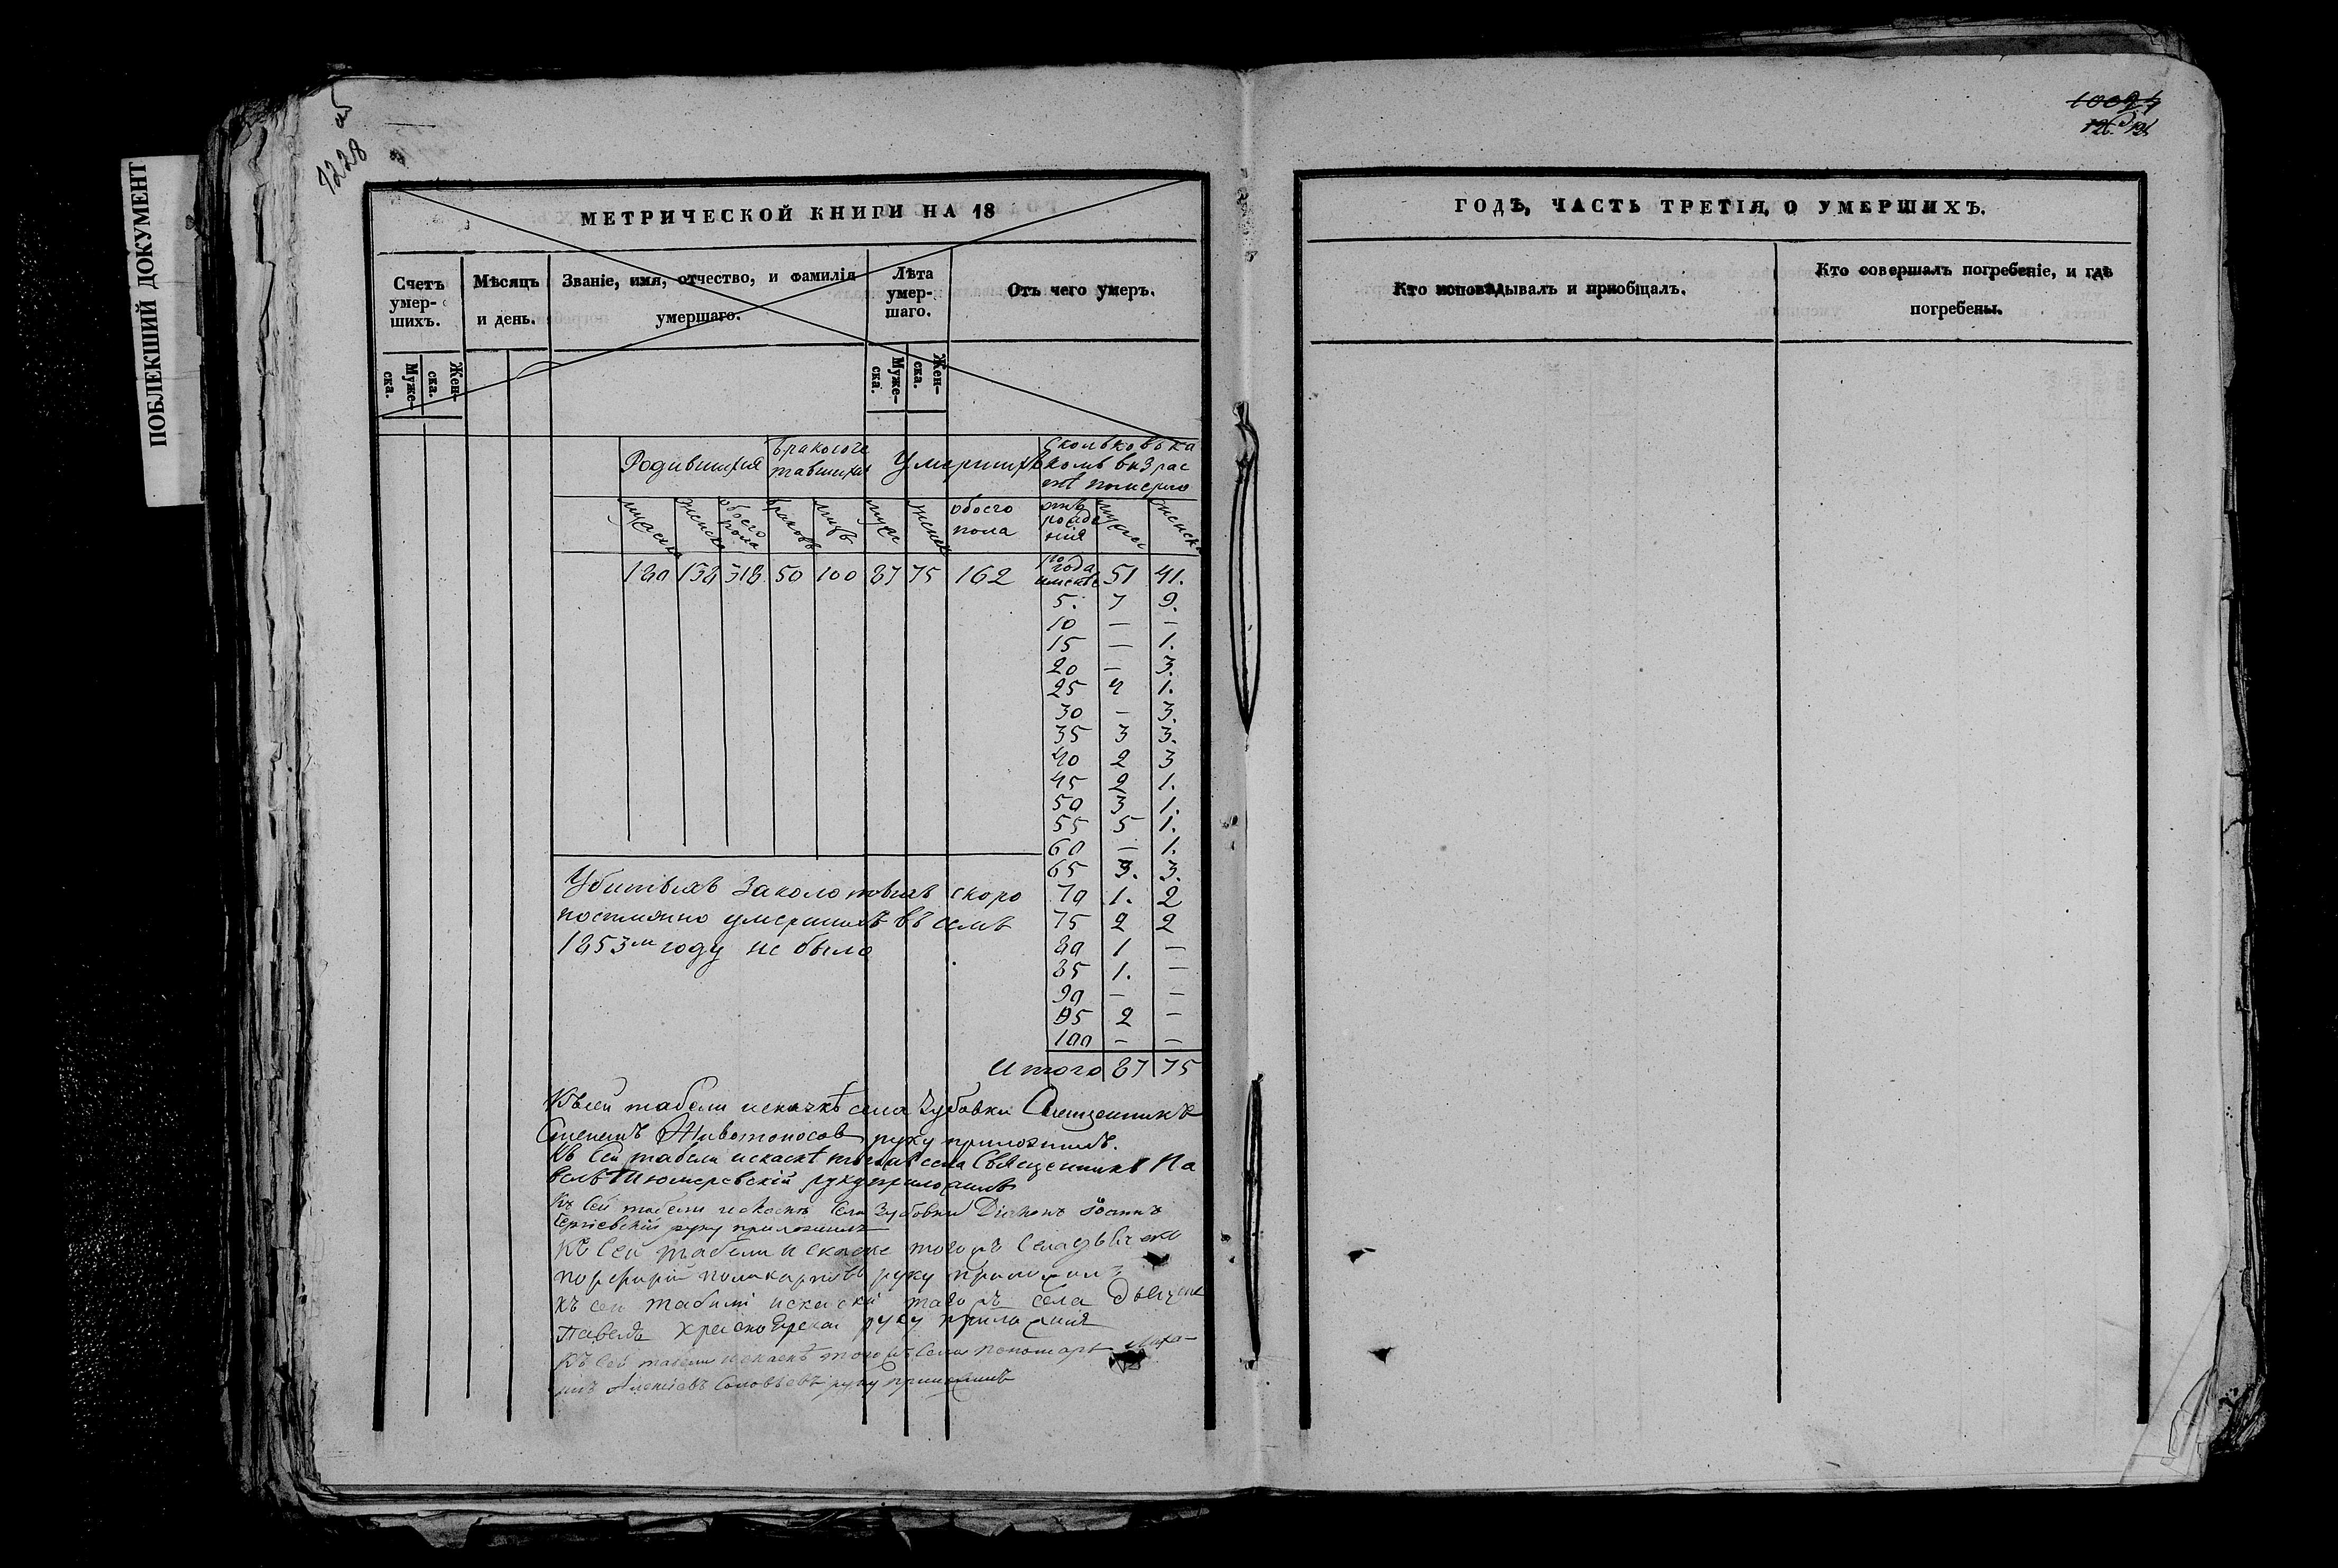 ПОБЛЕКШИЙ ДОКУМЕНТ
1228 об
МЕТРИЧЕСКОЙ КНИГИ НА 18
Счетъ умер- шихъ.
Мѣсяцъ и день.
Званіе, имя, отчество, и фамилія умершаго.
Лѣта умер- шаго.
Отъ чего умеръ.
Муже- ска.
Жен- ска.
Муже- ска.
Жен- ска.
Родившихся
бракосоче тавшихся
Умершихъ
Сколько въ ка
комъ возрас
тѣ померло
мужска женска обоего пола браковъ лицъ муж женск обоего пола
отъ рожде нія мужск женска
180 138 318 50 100 87 75 162
до года 51 41.
5. 7 9.
10 — —
15 — 1.
20 — 3.
25 4 1.
30 — 3.
35 3 3.
40 2 3
45 2 1.
50 3 1.
55 5 1.
60 — 1.
65 3. 3.
70 1. 2
75 2 2
80 1 —
85 1. —
90 — —
95 2 —
100 — —
Итого 87 75
Убитыхъ заколотыхъ скоро
постижно умершихъ въ семъ
1853м году не было
Къ сей табели и сказкѣ села Зубовки Священникъ
Стефанъ Животоносовъ руку приложилъ.
Къ сей табели и сказкѣ тогожъ села Священникъ Па
велъ руку приложилъ
Къ сей табели и сказкѣ села Зубовки Діаконъ Іоаннъ
Сергіевскій руку приложилъ
Къ сей табели и сказке тогожъ села дьячекъ
Порфирій Поликарповъ руку приложилъ
къ сей табели и сказки тогожъ села дьячек
Павелъ Красноярскай руку приложилъ
Къ сей табели и сказкѣ тогожъ села пономарь
Алексѣевъ Соловьевъ руку приложилъ
ГОДѢ, ЧАСТЬ ТРЕТІЯ, О УМЕРШИХЪ.
Кто исповѣдывалъ и пріобщалъ.
Кто совершалъ погребеніе, и гдѣ
погребены.